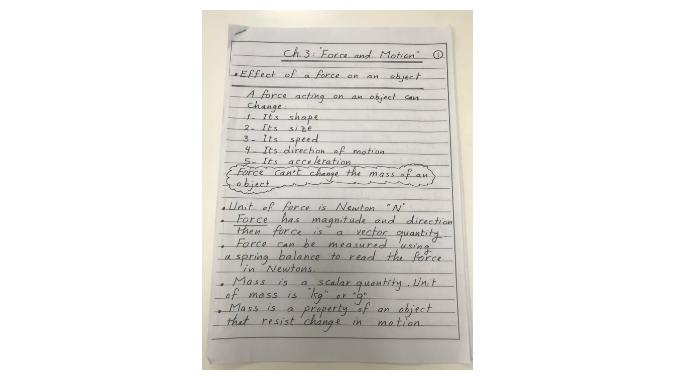 Ch.3: "Force and Motion" 1
• Effect of a force on an object
A force acting on an object can
change:
1- Its shape
2- Its size
3- Its speed
4- Its direction of motion
5- Its acceleration
Force can't change the mass of an
object
• Unit of force is Newton "N"
• Force has magnitude and direction
then force is a vector quantity
• Force can be measured using
a spring balance to read the force
in Newtons.
• Mass is a scalar quantity. Unit
of mass is "kg" or "g".
• Mass is a property of an object
that resist change in motion.